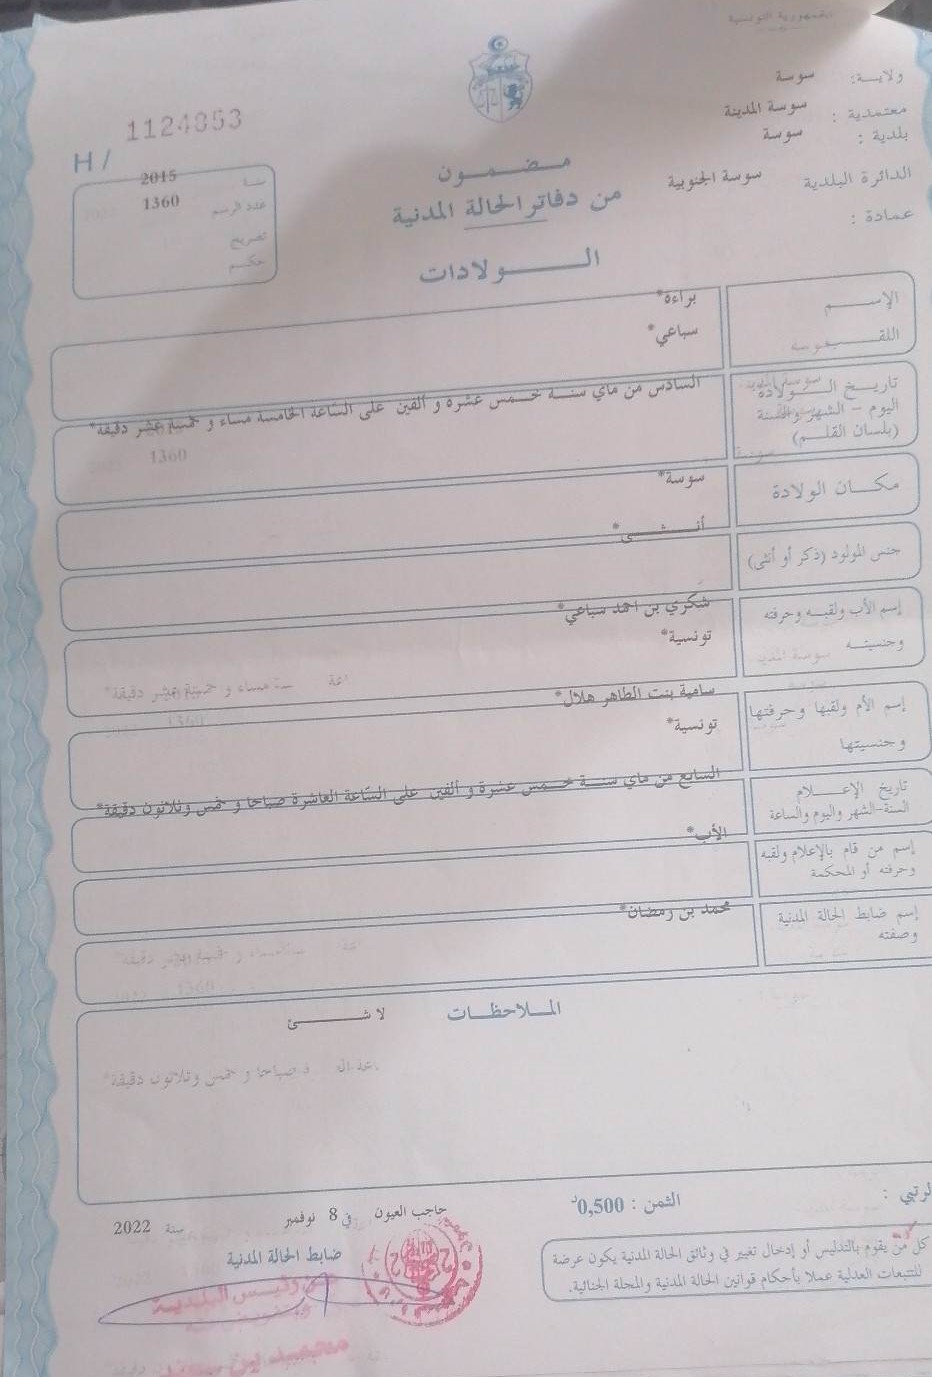 الجمهورية التونسية
ولايـــة: سوسة
معتمدية : سوسة المدينة
بلدية : سوسة
الدائرة البلدية سوسة الجنوبية
عمادة :
1124853
H /
سنة 2015
عدد الرسم 1360
تصريح
حكم
مضمون
من دفاتر الحالة المدنية
الـــولادات
الإســـم براءة*
اللقـــب سباعي*
تاريخ الـــولادة
اليوم – الشهر والسنة
(بلسان القلـــم)
السادس من ماي سنة خمس عشرة و ألفين على الساعة الخامسة مساء و خمسة عشر دقيقة*
1360
مكـــان الولادة سوسة*
جنس المولود (ذكر أو أنثى) أنـــثـــى*
إسم الأب ولقبـــه وحرفته شكري بن احمد سباعي*
وجنسيتـــه تونسية*
إسم الأم ولقبها وحرفتها سامية بنت الطاهر هلال*
وجنسيتها تونسية*
تاريخ الإعـــلام
السنة-الشهر واليوم والساعة
السابع من ماي سنة خمس عشرة و ألفين على الساعة العاشرة صباحا و خمس وثلاثون دقيقة*
إسم من قام بالإعلام ولقبه
وحرفته أو المحكمة
الأب*
إسم ضابط الحالة المدنية
وصفته
محمد بن رمضان*
المـــلاحظـــات
لا شـــئ
الثمن : 0,500د
حاجب العيون في 8 نوفمبر سنة 2022
ضابط الحالة المدنية
كل من يقوم بالتدليس أو إدخال تغيير في وثائق الحالة المدنية يكون عرضة
للتتبعات العدلية عملا بأحكام قوانين الحالة المدنية والمجلة الجنائية.
عن رئيس البلدية